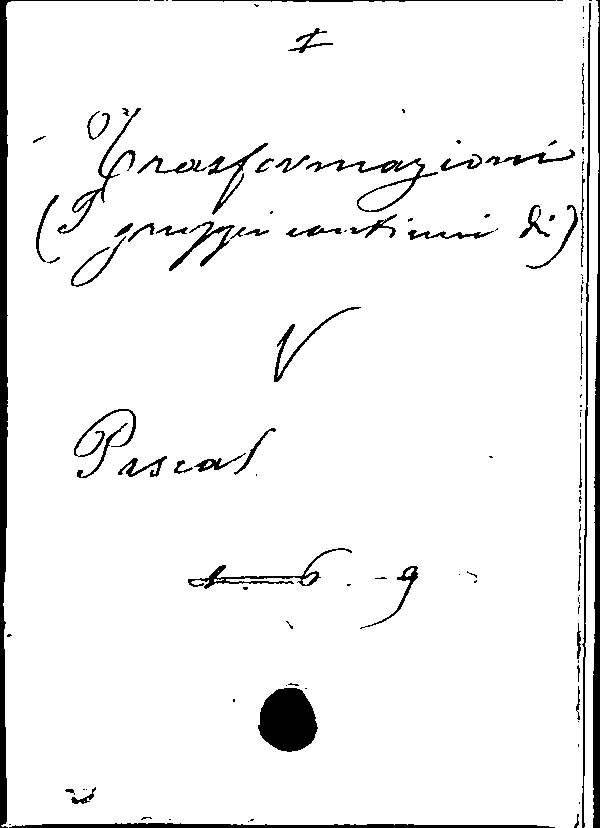 Trasformazioni
(I gruppi continui di)
V
Pascal
6 - 9